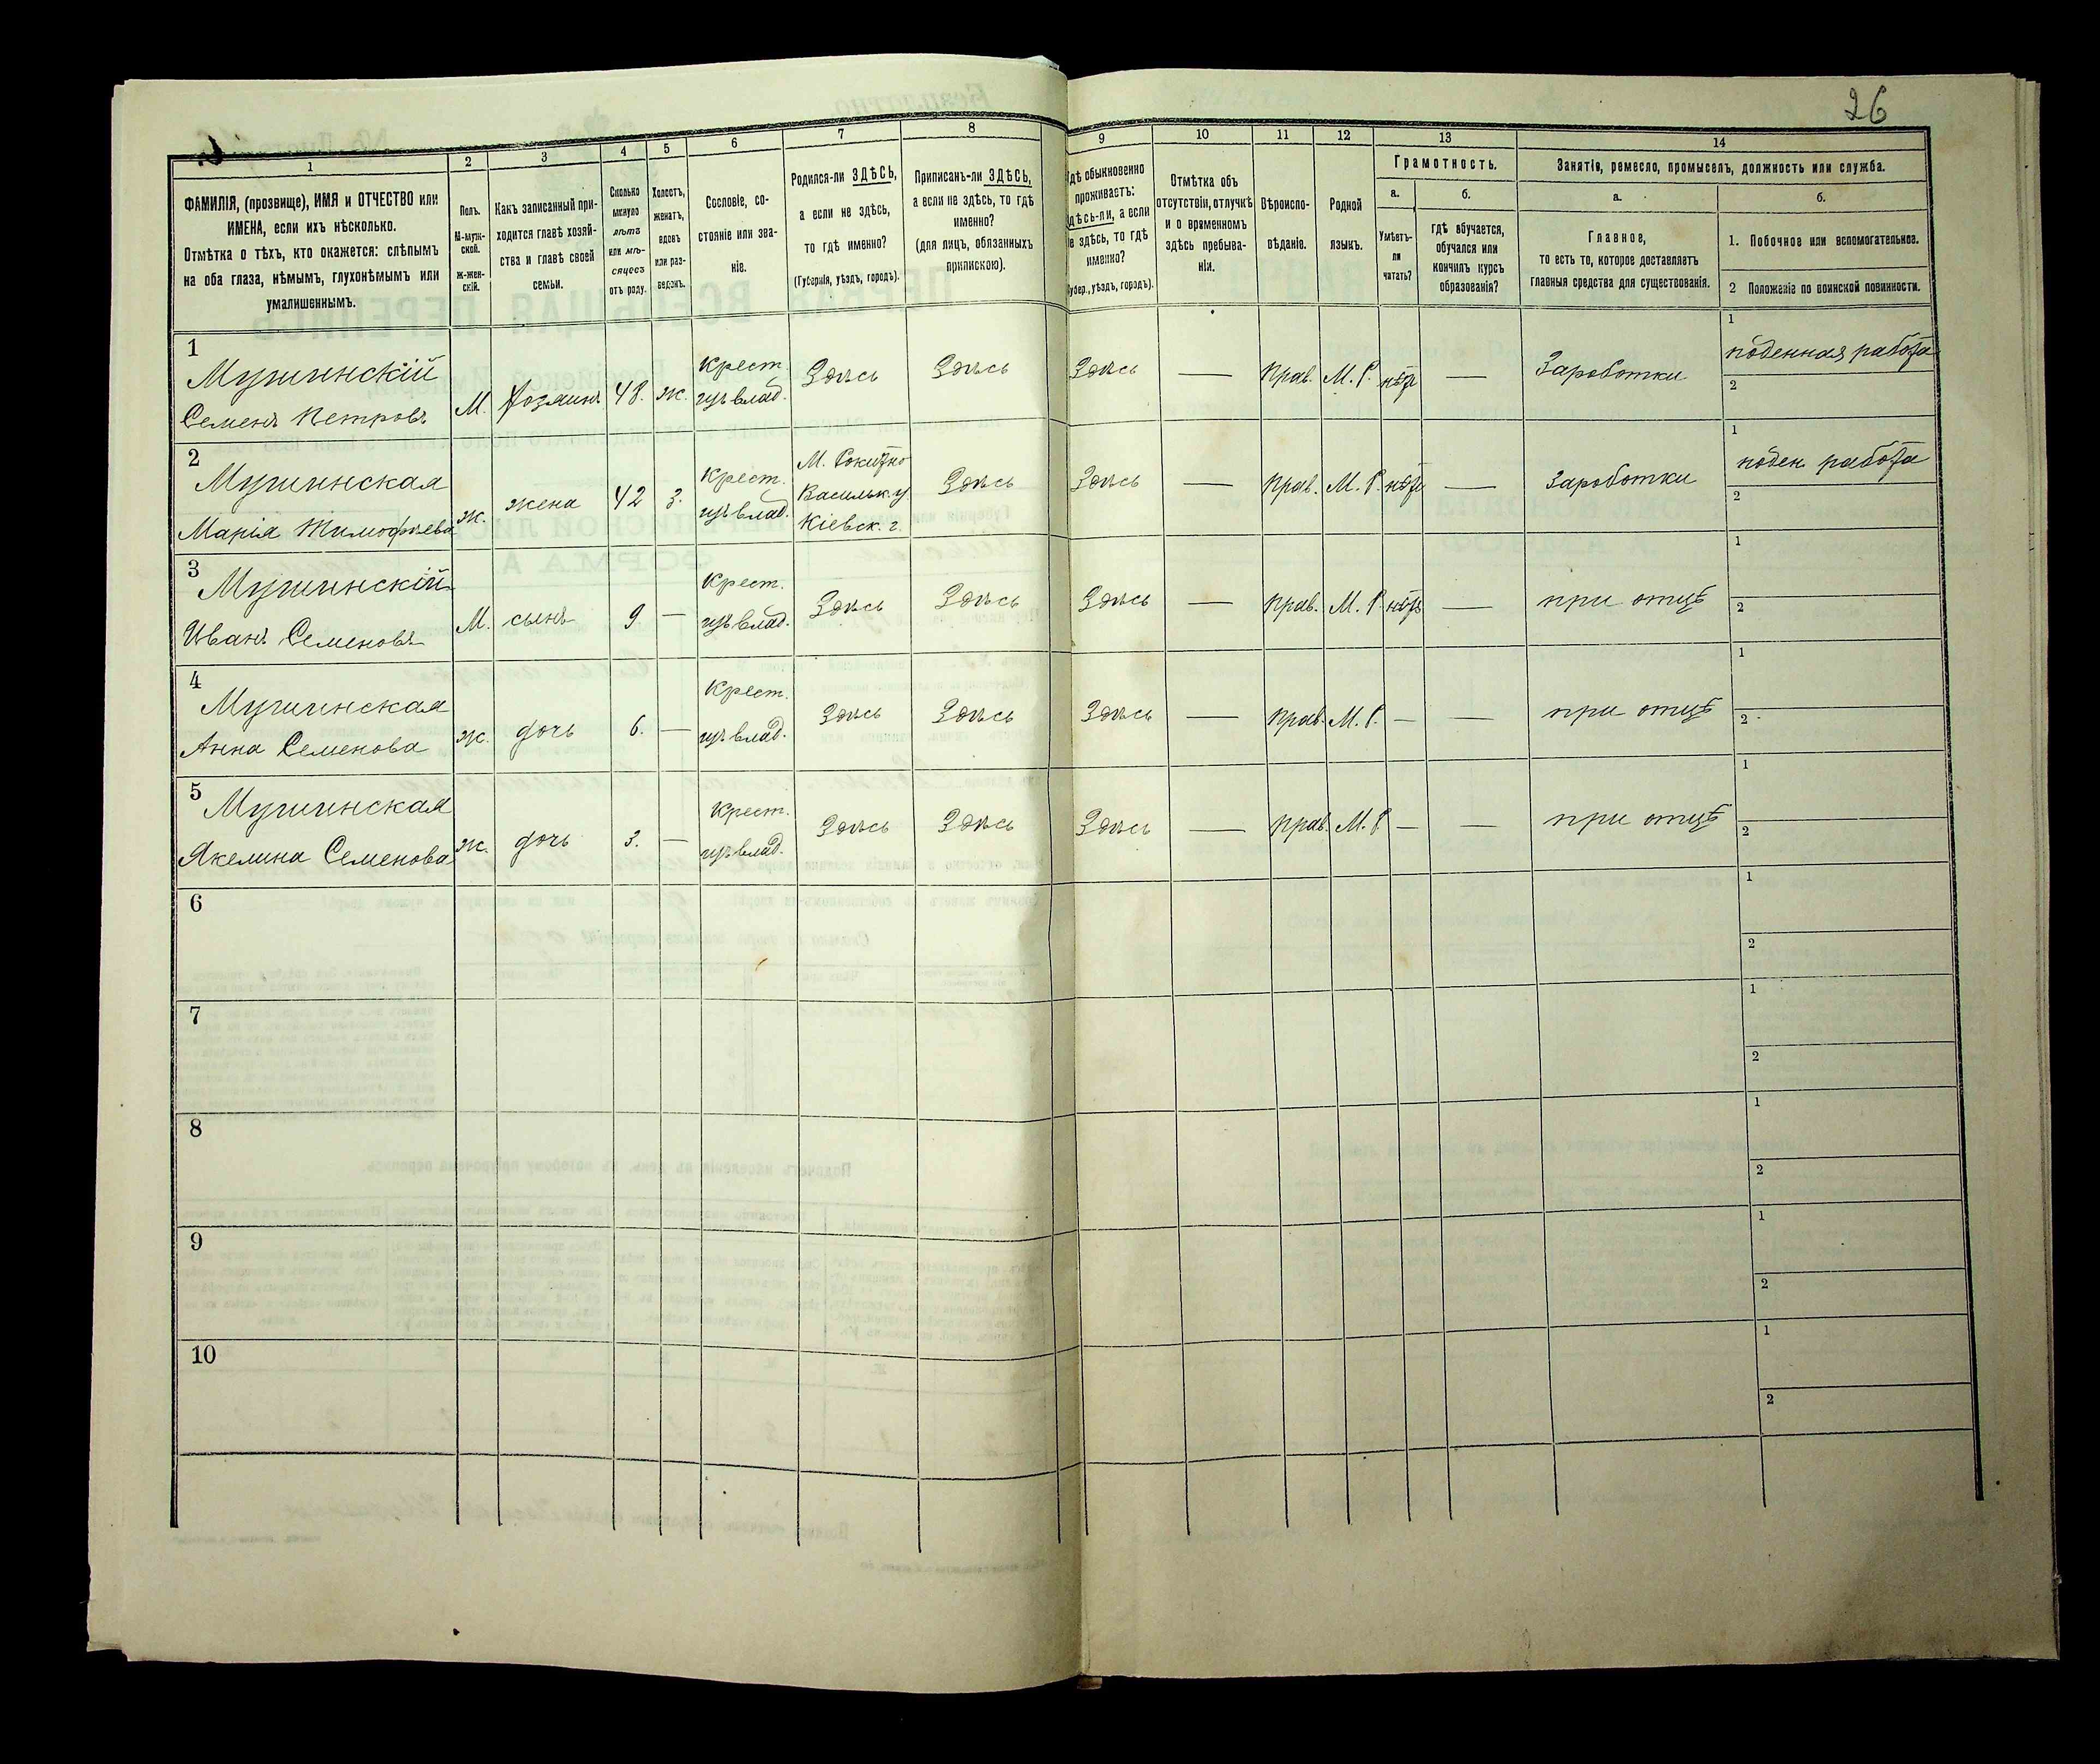 26
1
ФАМИЛІЯ, (прозвище), ИМЯ и ОТЧЕСТВО или
ИМЕНА, если ихъ нѣсколько.
Отмѣтка о тѣхъ, кто окажется: слѣпымъ
на оба глаза, нѣмымъ, глухонѣмымъ или
умалишеннымъ.
2
Полъ.
М-муж-
ской.
Ж-жен-
скій.
3
Какъ записанный при-
ходится главѣ хозяй-
ства и главѣ своей
семьи.
4
Сколько
минуло
лѣтъ
или мѣ-
сяцевъ
отъ роду.
5
Холостъ,
женатъ,
вдовъ
или раз-
веденъ.
6
Сословіе, со-
стояніе или зва-
ніе.
7
Родился-ли ЗДѢСЬ,
а если не здѣсь,
то гдѣ именно?
(Губернія, уѣздъ, городъ).
8
Приписанъ-ли ЗДѢСЬ,
а если не здѣсь, то гдѣ
именно?
(для лицъ, обязанныхъ
припискою).
9
гдѣ обыкновенно
проживаетъ:
здѣсь-ли, а если
не здѣсь, то гдѣ
именно?
Губер., уѣздъ, городъ).
10
Отмѣтка объ
отсутствіи, отлучкѣ
и о временномъ
здѣсь пребыва-
ніи.
11
Вѣроиспо-
вѣданіе.
12
Родной
языкъ.
13
Грамотность.
а.
Умѣетъ-
ли
читать?
б.
гдѣ обучается,
обучался или
кончилъ курсъ
образованія?
14
Занятіе, ремесло, промыселъ, должность или служба.
а.
Главное,
то есть то, которое доставляетъ
главныя средства для существованія.
б.
1. Побочное или вспомогательное.
2 Положеніе по воинской повинности.
1
Семенъ Петровъ
М.
Хозяинъ
48.
ж.
Крест.
Здѣсь
Здѣсь
Здѣсь
—
прав.
М. Р.
нѣтъ
—
Заработки
1
поденная работа
2
2
Марія Тимофѣева
ж.
жена
42
з.
Крест.
М. Рокитно
Васильк. у.
Кіевск. г.
Здѣсь
Здѣсь
—
прав.
М. Р.
нѣтъ
—
Заработки
1
поден. работа
2
3
Иванъ Семеновъ
М.
сынъ
9
—
Крест.
Здѣсь
Здѣсь
Здѣсь
—
прав.
М. Р.
нѣтъ
—
при отцѣ
1
2
4
Анна Семенова
ж.
дочь
6.
—
Крест.
Здѣсь
Здѣсь
Здѣсь
—
прав.
М. Р.
—
—
при отцѣ
1
2
5
Якелина Семенова
ж.
дочь
3.
—
Крест.
Здѣсь
Здѣсь
Здѣсь
—
прав.
М. Р
—
—
при отцѣ
1
2
6
1
2
7
1
2
8
1
2
9
1
2
10
1
2